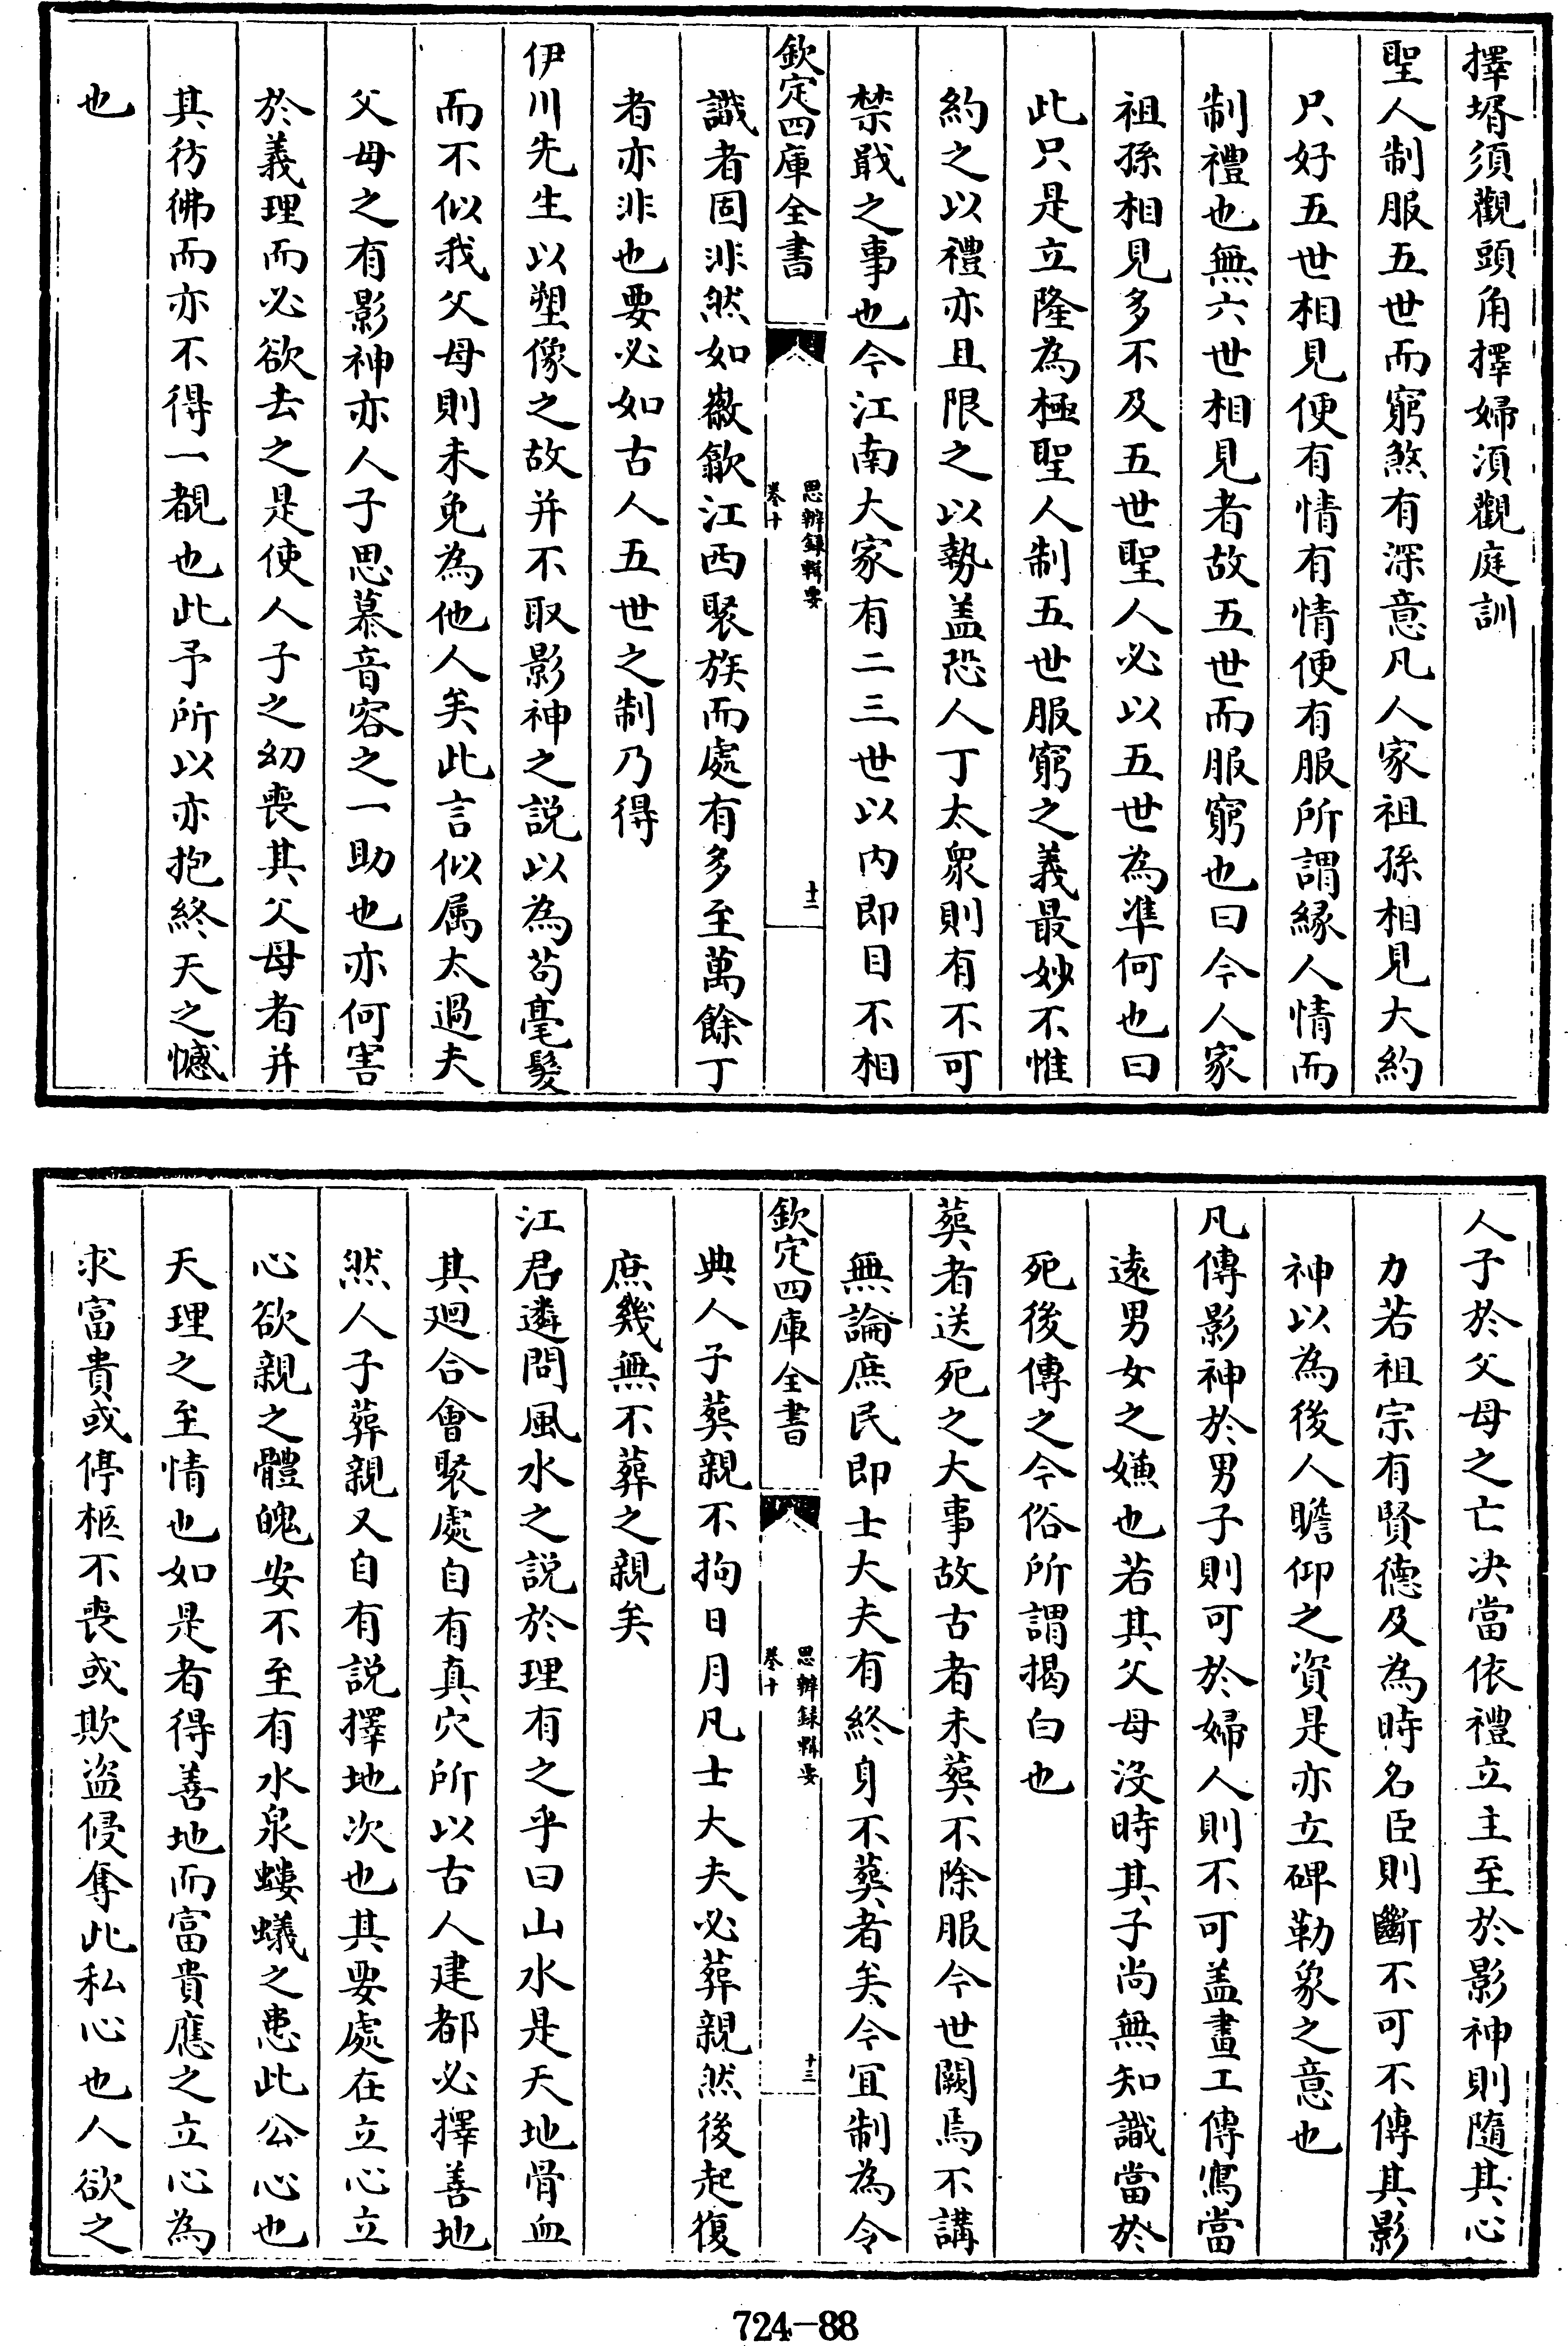 擇壻須觀頭角擇婦湏觀庭訓
聖人制服五世而窮煞有深意凡人家祖孫相見大約
只好五世相見便有情有情便有服所謂緣人情而
制禮也無六世相見者故五世而服窮也曰今人家
祖孫相見多不及五世聖人必以五世為準何也曰
此只是立隆為極聖人制五世服窮之義最妙不惟
約之以禮亦且限之以勢盖恐人丁太衆則有不可
禁戢之事也今江南大家有二三世以内即目不相
欽定四庫全書
思辨録輯要
卷十
十二
識者固非然如徽歙江西聚族而處有多至萬餘丁
者亦非也要必如古人五世之制乃得
伊川先生以塑像之故并不取影神之説以為茍毫髮
而不似我父母則未免為他人矣此言似属太過夫
父母之有影神亦人子思慕音容之一助也亦何害
於義理而必欲去之是使人子之幼喪其父母者并
其彷彿而亦不得一覩也此予所以亦抱終天之憾
也
人子於父母之亡決當依禮立主至於影神則隨其心
力若祖宗有賢德及為時名臣則斷不可不傳其影
神以為後人瞻仰之資是亦立碑勒象之意也
凡傳影神於男子則可於婦人則不可盖畫工傳寫當
遠男女之嫌也若其父母沒時其子尚無知識當於
死後傳之今俗所謂揭白也
葬者送死之大事故古者未葬不除服今世闕焉不講
無論庶民即士大夫有終身不葬者矣今宜制為令
欽定四庫全書
思辨録輯要
卷十
十三
典人子葬親不拘日月凡士大夫必葬親然後起復
庶幾無不葬之親矣
江君遴問風水之説於理有之乎曰山水是天地骨血
其廻合會聚處自有真穴所以古人建都必擇善地
然人子葬親又自有説擇地次也其要處在立心立
心欲親之體魄安不至有水泉螻蟻之患此公心也
天理之至情也如是者得善地而富貴應之立心為
求富貴或停柩不喪或欺盜侵奪此私心也人欲之
724-88